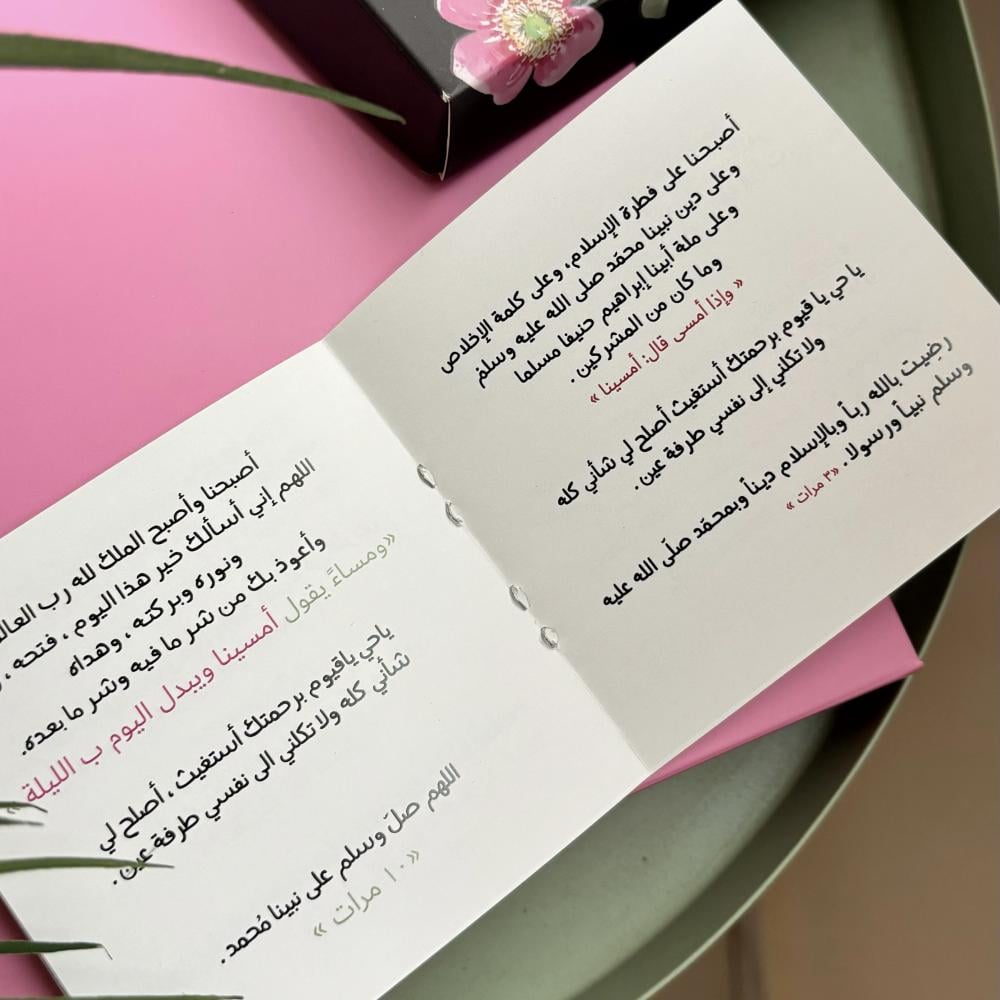 أصبحنا على فطرة الإسلام، وعلى كلمة الإخلاص
وعلى دين نبينا محمّد صلى الله عليه وسلم
وعلى ملة أبينا إبراهيم حنيفا مسلما
وما كان من المشركين .
« وإذا أمسى قال: أمسينا »
يا حي يا قيوم برحمتك أستغيث أصلح لي شأني كله
ولا تكلني إلى نفسي طرفة عين .
رضيت بالله رباً وبالإسلام ديناً وبمحمّد صلّى الله عليه
وسلم نبياً ورسولا. «٣ مرات »
أصبحنا وأصبح الملك لله رب
اللهم إني أسألك خير هذا اليوم ، فتحه ،
ونوره وبركته ، وهداه
وأعوذ بك من شر ما فيه وشر ما بعده.
«ومساءً يقول أمسينا ويبدل اليوم ب الليلة »
ياحي ياقيوم برحمتك أستغيث ، أصلح لي
شأني كله ولا تكلني الى نفسي طرفة عين .
اللهم صلّ وسلم على نبينا مُحمد .
«١٠ مرات »